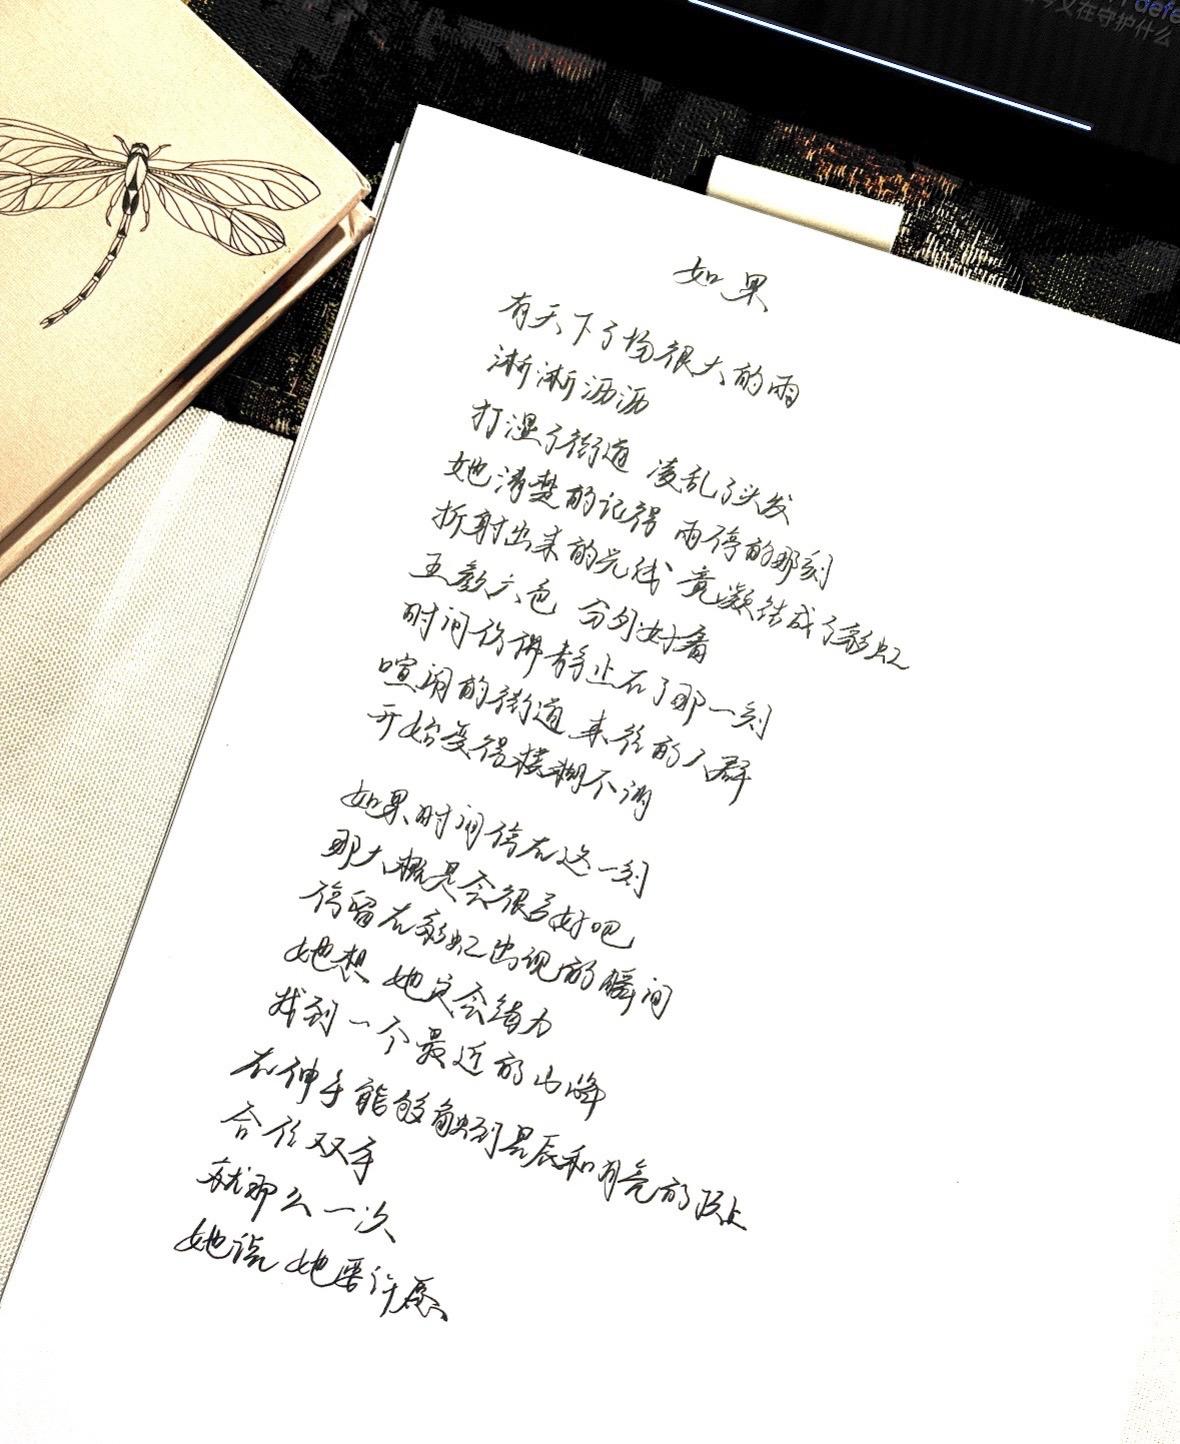 defe
又在守护什么
如果
有天下了场很大的雨
淅淅沥沥
打湿了街道 凌乱了头发
她清楚的记得 雨停的那刻
折射出来的光线 竟凝结成了彩虹
五颜六色 分外好看
时间仿佛静止在了那一刻
喧闹的街道 来往的人群
开始变得模糊不清
如果时间停在这一刻
那大概是会很美好吧
停留在彩虹出现的瞬间
她想 她定会努力
找到一个最近的山峰
在伸手能够触到星辰和月亮的际上
合住双手
就那么一次
她说 她要许愿